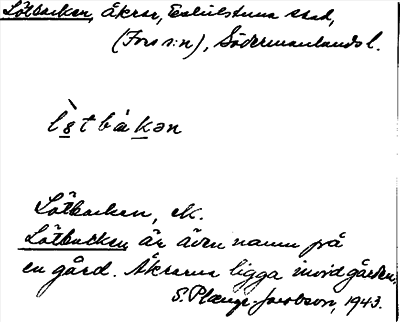 Lötbacken, åkrar, Eskilstuna stad,
(Fors s:n), Södermanlands l.
lø̀tbàkən
Lötbacken, ek.
Lötbacken är även namn på
en gård. Åkrarna ligga invid gården.
S. Plænge-Jacobson, 1943.